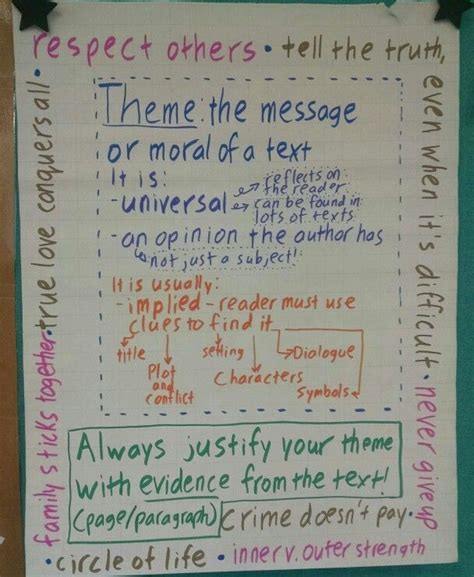 respect others • tell the truth,
even when it's difficult • never give up
Theme: the message
or moral of a text
It is:
-universal
reflects on
the reader
can be found in
lots of texts
-an opinion the author has
not just a subject!
It is usually:
-implied - reader must use
clues to find it
title
Plot
and
conflict
setting
Characters
Dialogue
Symbols
Always justify your theme
with evidence from the text!
(page/paragraph)
Crime doesn't pay •
• circle of life • inner v. outer strength
family sticks together • true love conquers all •